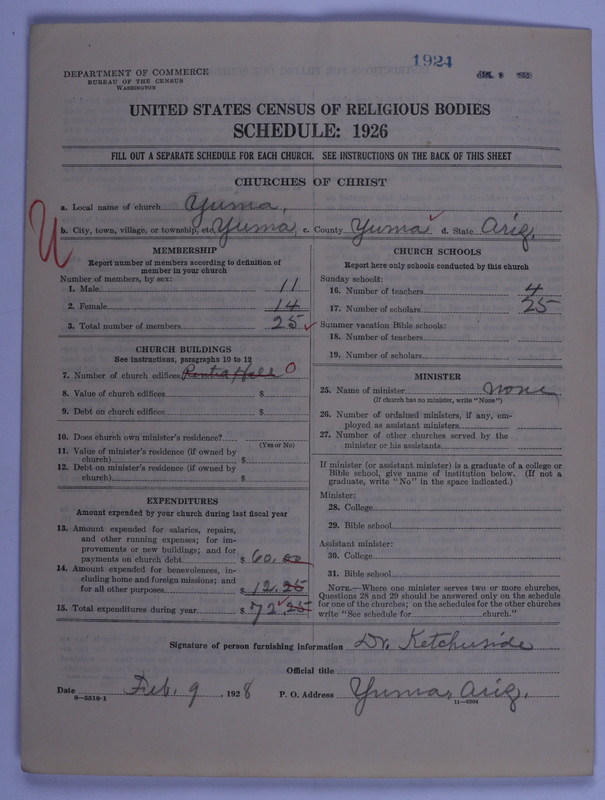 1924
DEPARTMENT OF COMMERCE
BUREAU OF THE CENSUS
WASHINGTON
UNITED STATES CENSUS OF RELIGIOUS BODIES
SCHEDULE: 1926
FILL OUT A SEPARATE SCHEDULE FOR EACH CHURCH. SEE INSTRUCTIONS ON THE BACK OF THIS SHEET
CHURCHES OF CHRIST
a. Local name of church Yuma,
b. City, town, village, or township, etc. Yuma, c. County Yuma d. State Ariz.
U
MEMBERSHIP
Report number of members according to definition of
member in your church
Number of members, by sex:
1. Male 11
2. Female 14
3. Total number of members 25
CHURCH BUILDINGS
See instructions, paragraphs 10 to 12
7. Number of church edifices Rent a Hall 0
8. Value of church edifices $
9. Debt on church edifices $
10. Does church own minister's residence?
(Yes or No)
11. Value of minister's residence (if owned by
church) $
12. Debt on minister's residence (if owned by
church) $
EXPENDITURES
Amount expended by your church during last fiscal year
13. Amount expended for salaries, repairs,
and other running expenses; for im-
provements or new buildings; and for
payments on church debt $ 60.00
14. Amount expended for benevolences, in-
cluding home and foreign missions; and
for all other purposes $ 12.25
15. Total expenditures during year $ 72.25
CHURCH SCHOOLS
Report here only schools conducted by this church
Sunday schools:
16. Number of teachers 4
17. Number of scholars 25
Summer vacation Bible schools:
18. Number of teachers
19. Number of scholars
MINISTER
25. Name of minister none
(If church has no minister, write "None")
26. Number of ordained ministers, if any, em-
ployed as assistant ministers
27. Number of other churches served by the
minister or his assistants
If minister (or assistant minister) is a graduate of a college or
Bible school, give name of institution below. (If not a
graduate, write "No" in the space indicated.)
Minister:
28. College
29. Bible school
Assistant minister:
30. College
31. Bible school
NOTE.—Where one minister serves two or more churches,
Questions 28 and 29 should be answered only on the schedule
for one of the churches; on the schedules for the other churches
write "See schedule for church."
Signature of person furnishing information Dr. Ketchuside
Official title
Date Feb. 9, 1928 P. O. Address Yuma, Ariz.
8—5518-1 11—9204